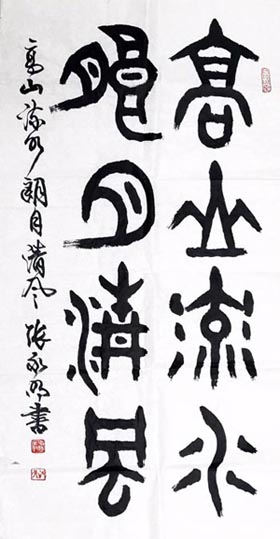 高山流水
朙月清風
高山流水 朙月清风 张永明書